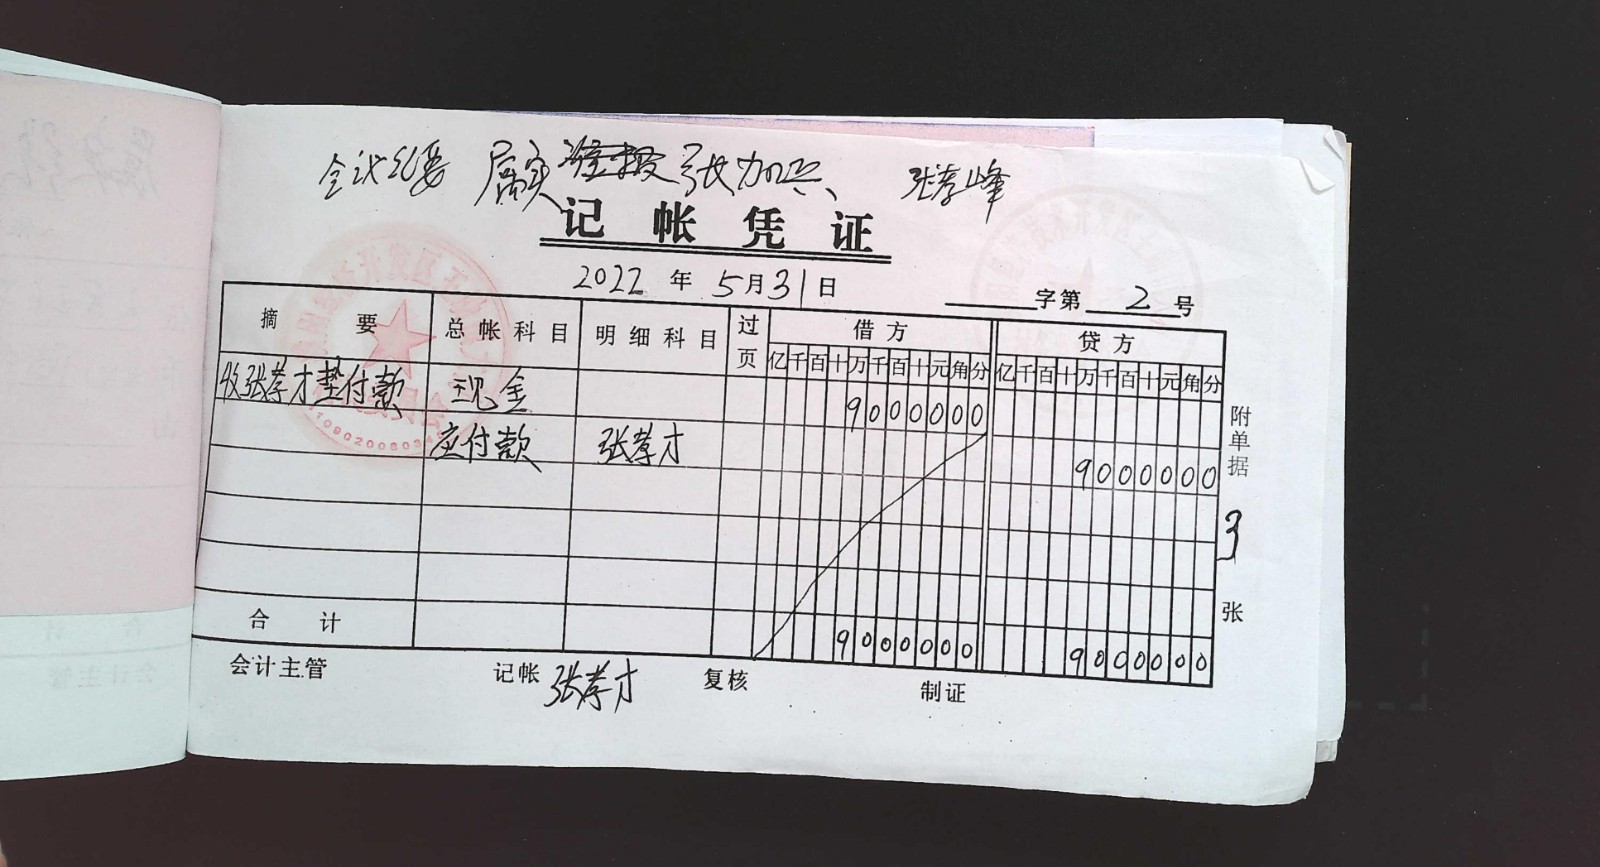 会议纪要 属实准报 张加兴、 张孝峰
记帐凭证
2022年5月31日 字第2号
摘要 总帐科目 明细科目 过页 借方 贷方
亿千百十万千百十元角分 亿千百十万千百十元角分
收张孝才垫付款 现金 9000000
应付款 张孝才 9000000
附单据 3 张
合计 9000000 9000000
会计主管 记帐 张孝才 复核 制证